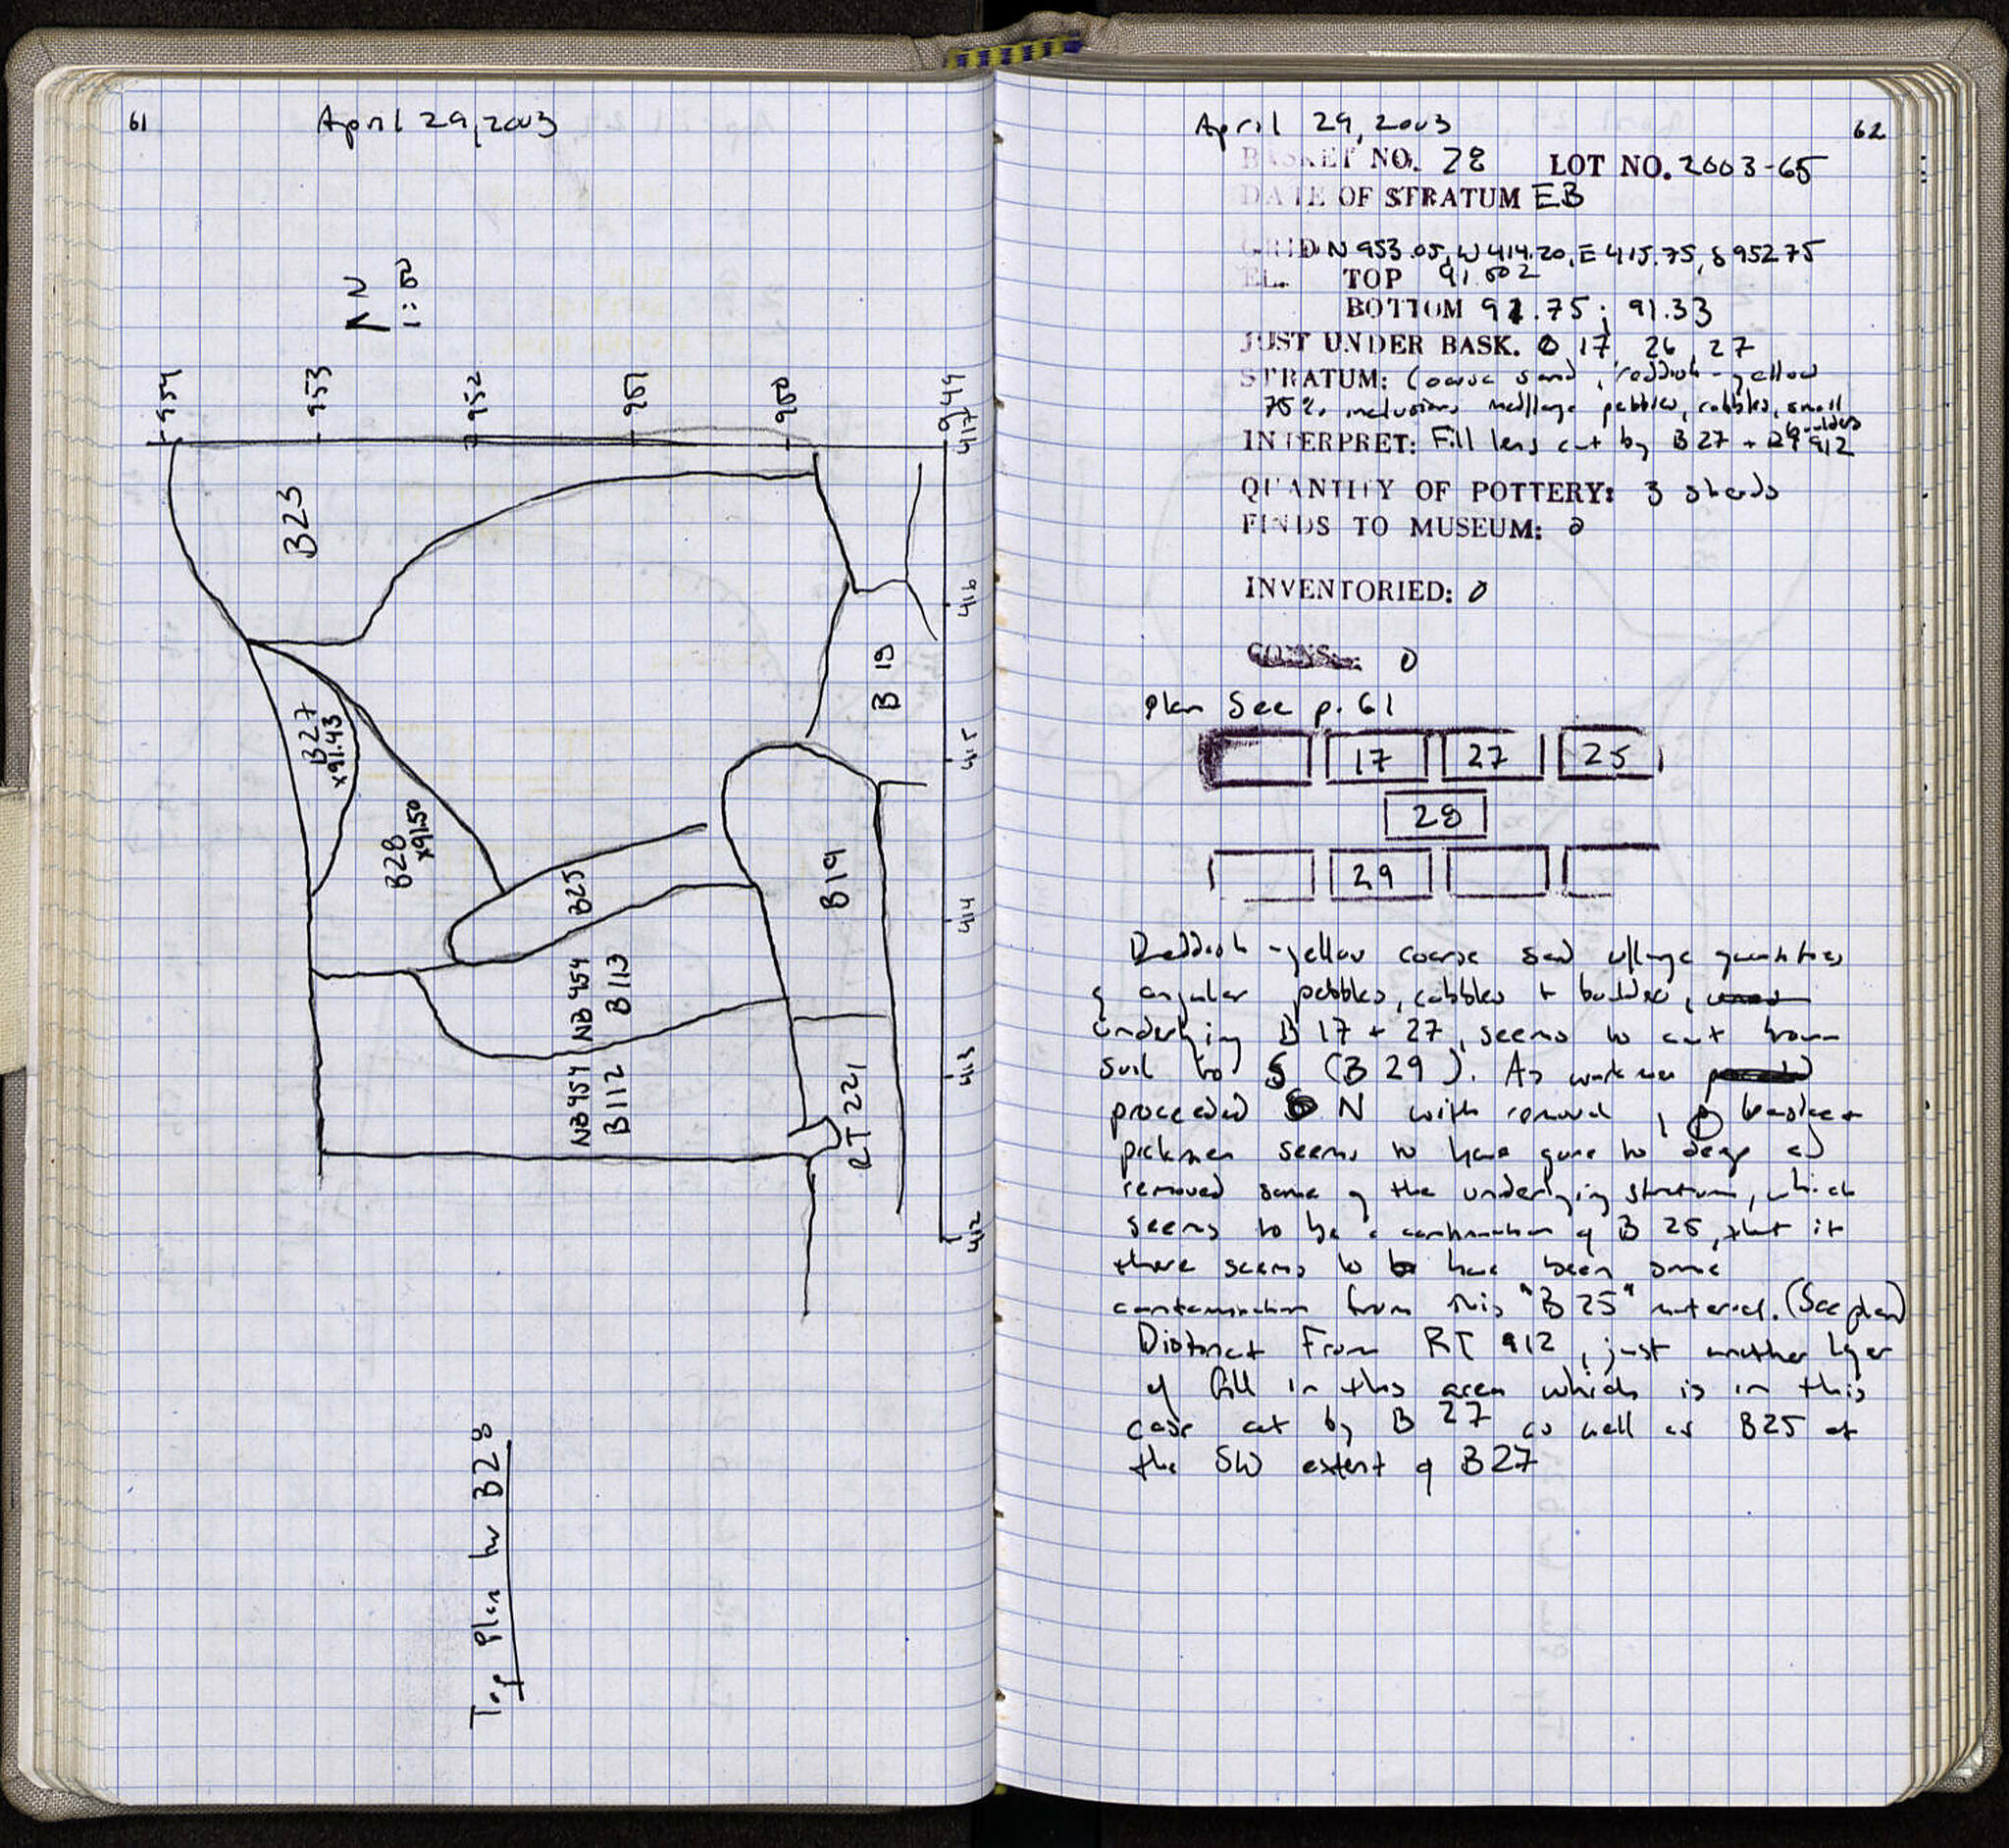 61
April 29, 2003
N
1:50
954
953
952
951
950
949
417
416
415
414
413
412
B23
B27
x91.43
B28
x91.50
B25
B19
B19
NB 954
B113
NB 954
B112
RT 221
Top Plan for B28
April 29, 2003
62
BASKET NO. 28 LOT NO. 2003-65
DATE OF STRATUM EB
GRID N 953.05, W 414.20, E 415.75, S 952.75
EL. TOP 91.602
BOTTOM 91.75; 91.33
JUST UNDER BASK. 0, 17, 26, 27
STRATUM: Coarse sand, reddish-yellow
75% inclusions med/large pebbles, cobbles, small
boulders
INTERPRET: Fill lens cut by B27 + 912
QUANTITY OF POTTERY: 3 sherds
FINDS TO MUSEUM: 0
INVENTORIED: 0
COINS: 0
Plan See p. 61
17 27 25
28
29
Reddish-yellow coarse sand w/large quantities
of angular pebbles, cobbles + boulder,
underlying B 17 + 27, seems to cut brown
soil to S (B 29). As workmen
proceeded N with removal,
pickmen seems to have gone to deep &
removed some of the underlying stratum, which
seems to be a continuation of B 25, that is
there seems to have been some
contamination from this "B 25" material. (See plan)
Distinct From RT 912, just another layer
of fill in this area which is in this
case cut by B 27 as well as B25 at
the SW extent of B27